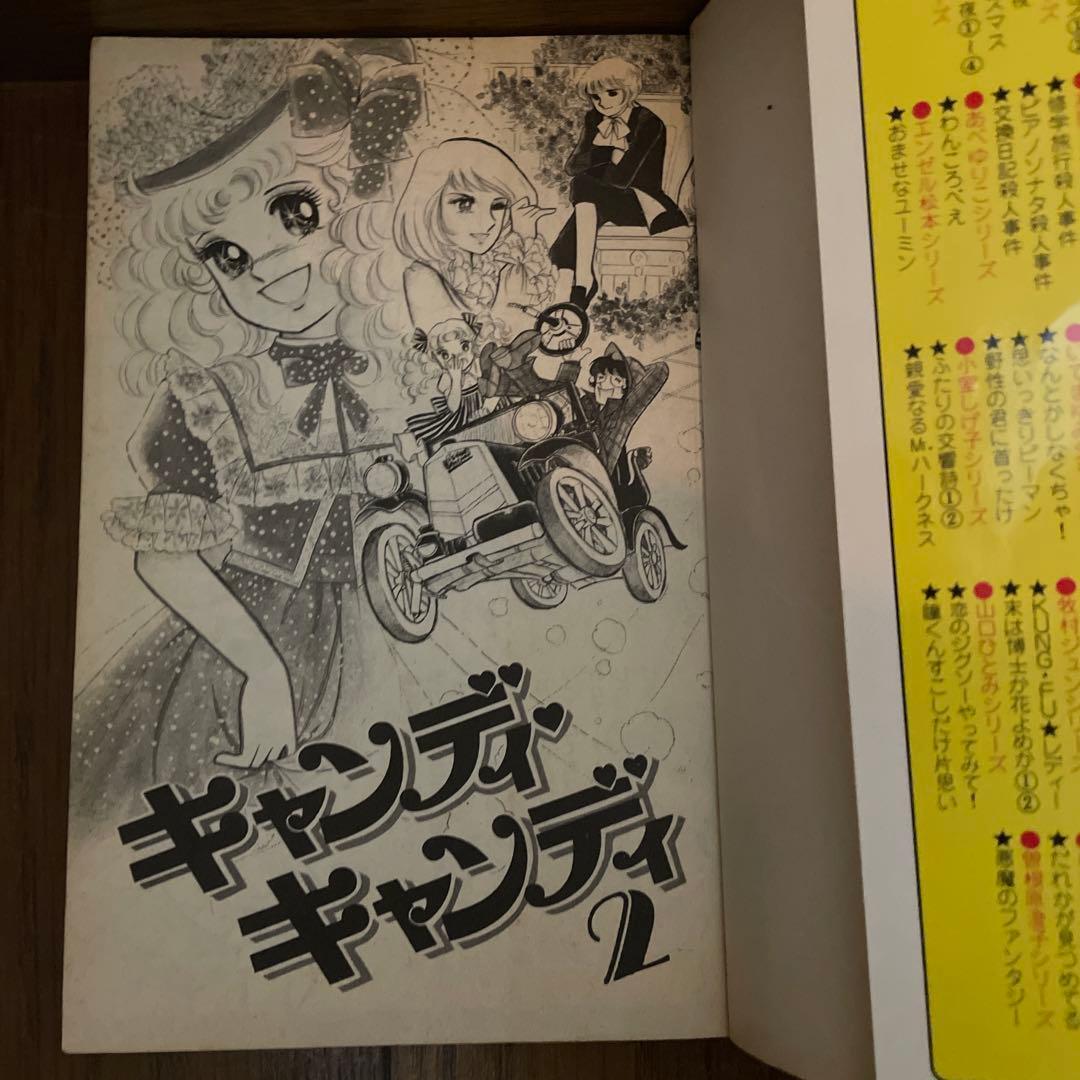 キャンディ
キャンディ
2
修学旅行殺人事件
★ピアノソナタ殺人事件
★交換日記殺人事件
●あべゆりこシリーズ
★わんころべえ
●エンゼル松本シリーズ
★おませなユーミン
★なんとかしなくちゃ!
★思いっきりピーマン
★野性の君に首ったけ
●小室しげ子シリーズ
★ふたりの交響詩①②
★親愛なるMr.ハークネス
●牧村ジュンシリーズ
★KUNG・FU★レディー
★末は博士か花よめか①②
●山口ひとみシリーズ
★恋のジグソーやってみて!
★瞳くんすこしだけ片思い
★だれかが見つめてる
●曽根原澄子シリーズ
★悪魔のファンタジー